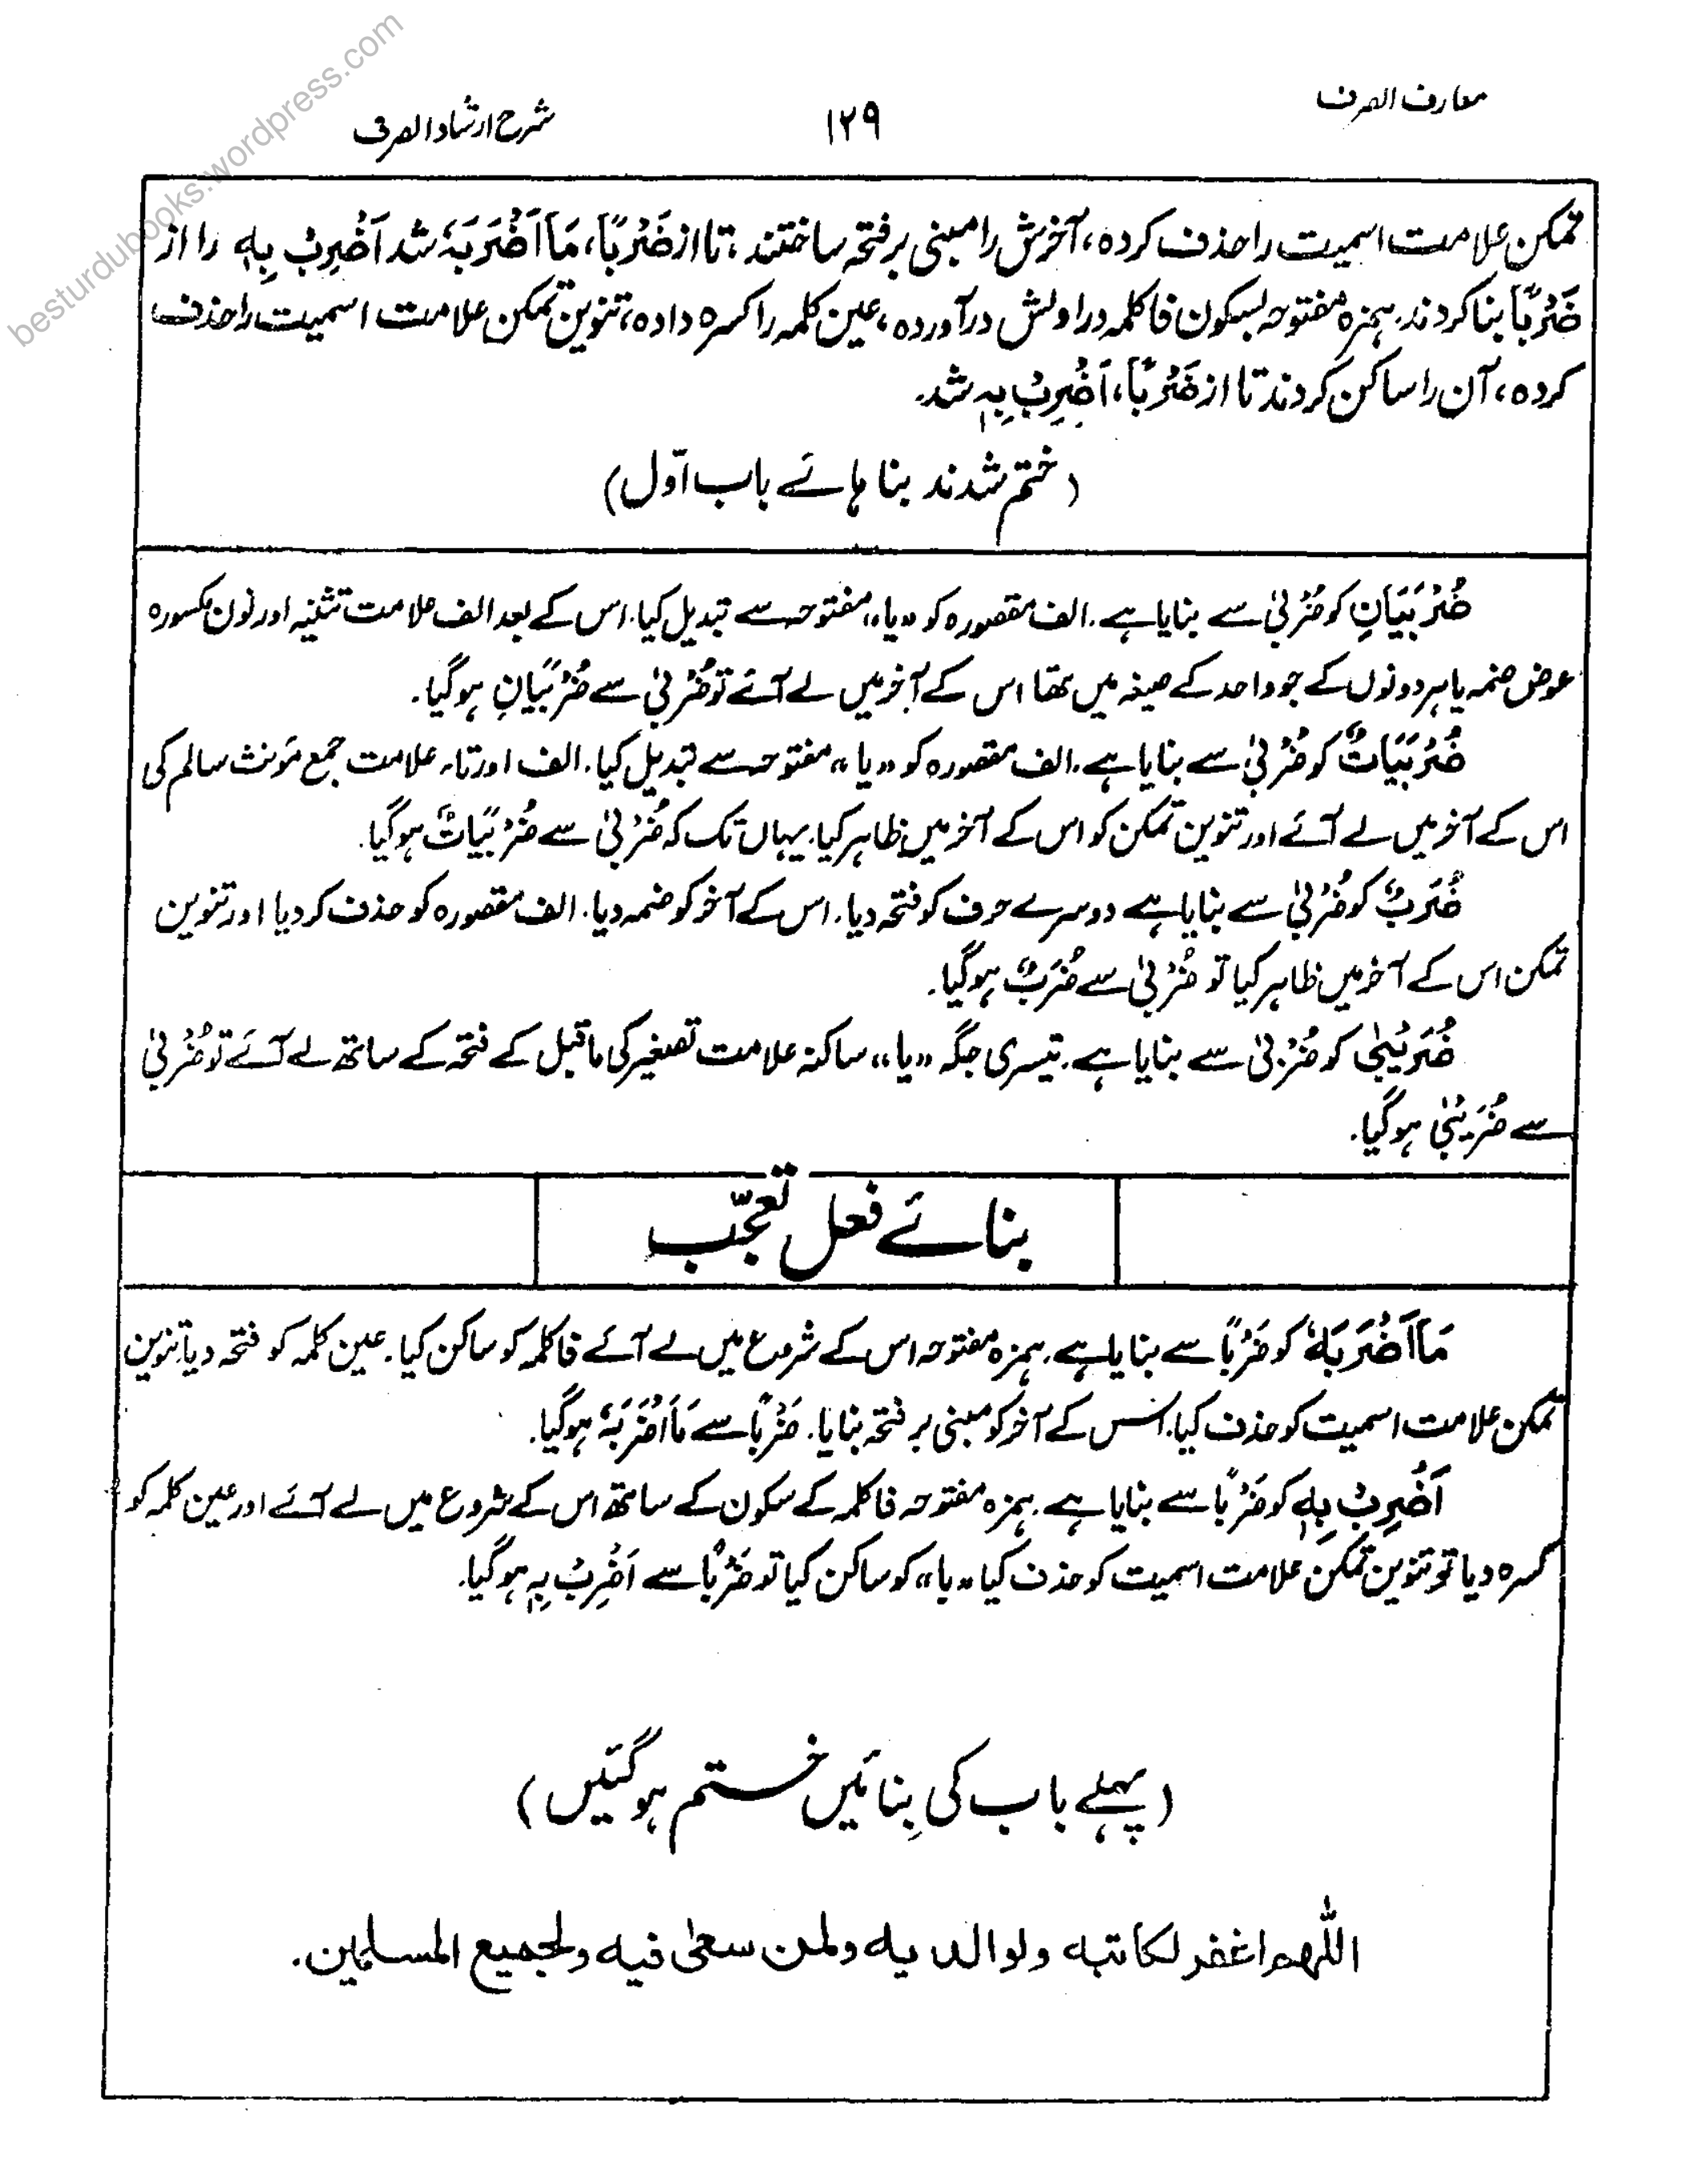 besturdubooks.wordpress.com
معارف الصرف
۱۲۹
شرح ارشاد الصرف
تمکن علامت اسمیت را حذف کردہ، آخرش را مبنی بر فتحہ ساختند، تا از ضَرْبًا، مَا اَضْرَبَہٗ شد اَضْرِبْ بِہٖ را از
ضَرْبًا بنا کردند۔ ہمزہ مفتوحہ بسکون فا کلمہ در اولش در آوردہ، عین کلمہ را کسرہ دادہ، تنوین تمکن علامت اسمیت را حذف
کردہ، آن را ساکن کردند تا از ضَرْبًا، اَضْرِبْ بِہٖ شد۔
(ختم شدند بنا ہائے باب اوّل)
ضُرْبَیَانِ کو ضُرْبیٰ سے بنایا ہے۔ الف مقصورہ کو ،،یا،، مفتوحہ سے تبدیل کیا۔ اس کے بعد الف علامت تثنیہ اور نون مکسورہ
عوض ضمہ یا ہر دونوں کے جو واحد کے صیغہ میں تھا اس کے آخر میں لے آئے تو ضُرْبیٰ سے ضُرْبَیَانِ ہو گیا۔
ضُرْبَیَاتٌ کو ضُرْبیٰ سے بنایا ہے۔ الف مقصورہ کو ،،یا،، مفتوحہ سے تبدیل کیا۔ الف اور تاء علامت جمع مؤنث سالم کی
اس کے آخر میں لے آئے اور تنوین تمکن کو اس کے آخر میں ظاہر کیا۔ یہاں تک کہ ضُرْبیٰ سے ضُرْبَیَاتٌ ہو گیا۔
ضُرَبٌ کو ضُرْبیٰ سے بنایا ہے دوسرے حرف کو فتحہ دیا۔ اس کے آخر کو ضمہ دیا۔ الف مقصورہ کو حذف کر دیا اور تنوین
تمکن اس کے آخر میں ظاہر کیا تو ضُرْبیٰ سے ضُرَبٌ ہو گیا۔
ضُرَیْبیٰ کو ضُرْبیٰ سے بنایا ہے۔ تیسری جگہ ،،یا،، ساکنہ علامت تصغیر کی ماقبل کے فتحہ کے ساتھ لے آئے تو ضُرْبیٰ
سے ضُرَیْبیٰ ہو گیا۔
بنائے فعل تعجّب
مَا اَضْرَبَہٗ کو ضَرْبًا سے بنایا ہے۔ ہمزہ مفتوحہ اس کے شروع میں لے آئے فا کلمہ کو ساکن کیا۔ عین کلمہ کو فتحہ دیا تنوین
تمکن علامت اسمیت کو حذف کیا۔ اس کے آخر کو مبنی بر فتحہ بنایا۔ ضَرْبًا سے مَا اَضْرَبَہٗ ہو گیا۔
اَضْرِبْ بِہٖ کو ضَرْبًا سے بنایا ہے۔ ہمزہ مفتوحہ فا کلمہ کے سکون کے ساتھ اس کے شروع میں لے آئے اور عین کلمہ کو
کسرہ دیا تو تنوین تمکن علامت اسمیت کو حذف کیا ،،با،، کو ساکن کیا تو ضَرْبًا سے اَضْرِبْ بِہٖ ہو گیا۔
(پہلے باب کی بنائیں ختم ہو گئیں)
اللّٰھم اغفر لکاتبہ ولوالدیہ ولمن سعیٰ فیہ ولجمیع المسلمین۔